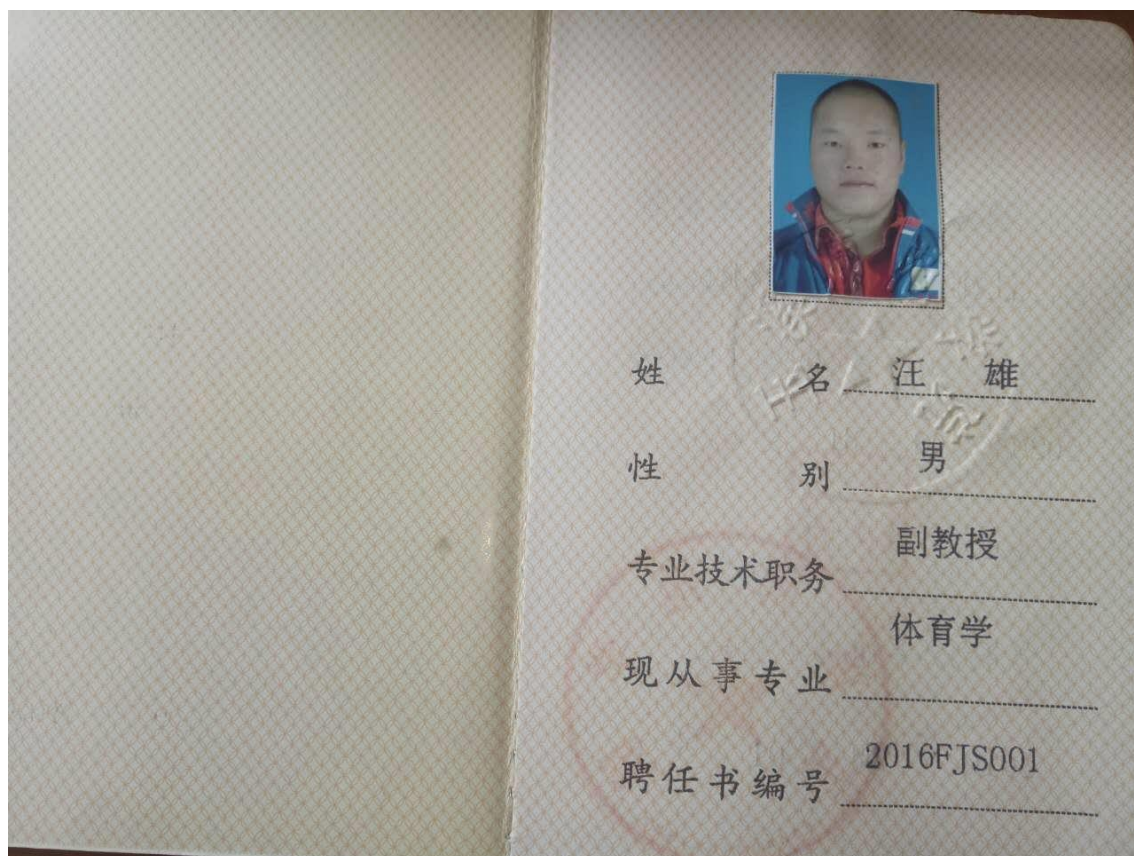 姓名 汪雄
性别 男
专业技术职务 副教授
现从事专业 体育学
聘任书编号 2016FJS001